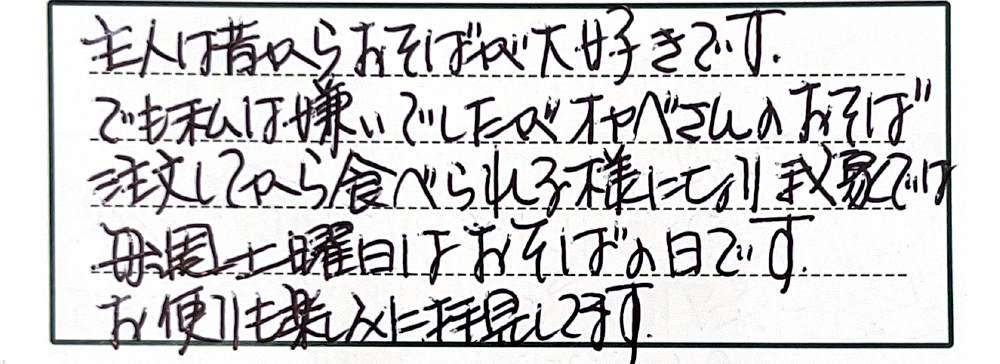 主人は昔からおそばが大好きです.
でも私は嫌いでしたがオヤベさんのおそば
注文してから食べられる様になり我家では
毎週土曜日はおそばの日です.
お便りも楽しみに拝見してます.